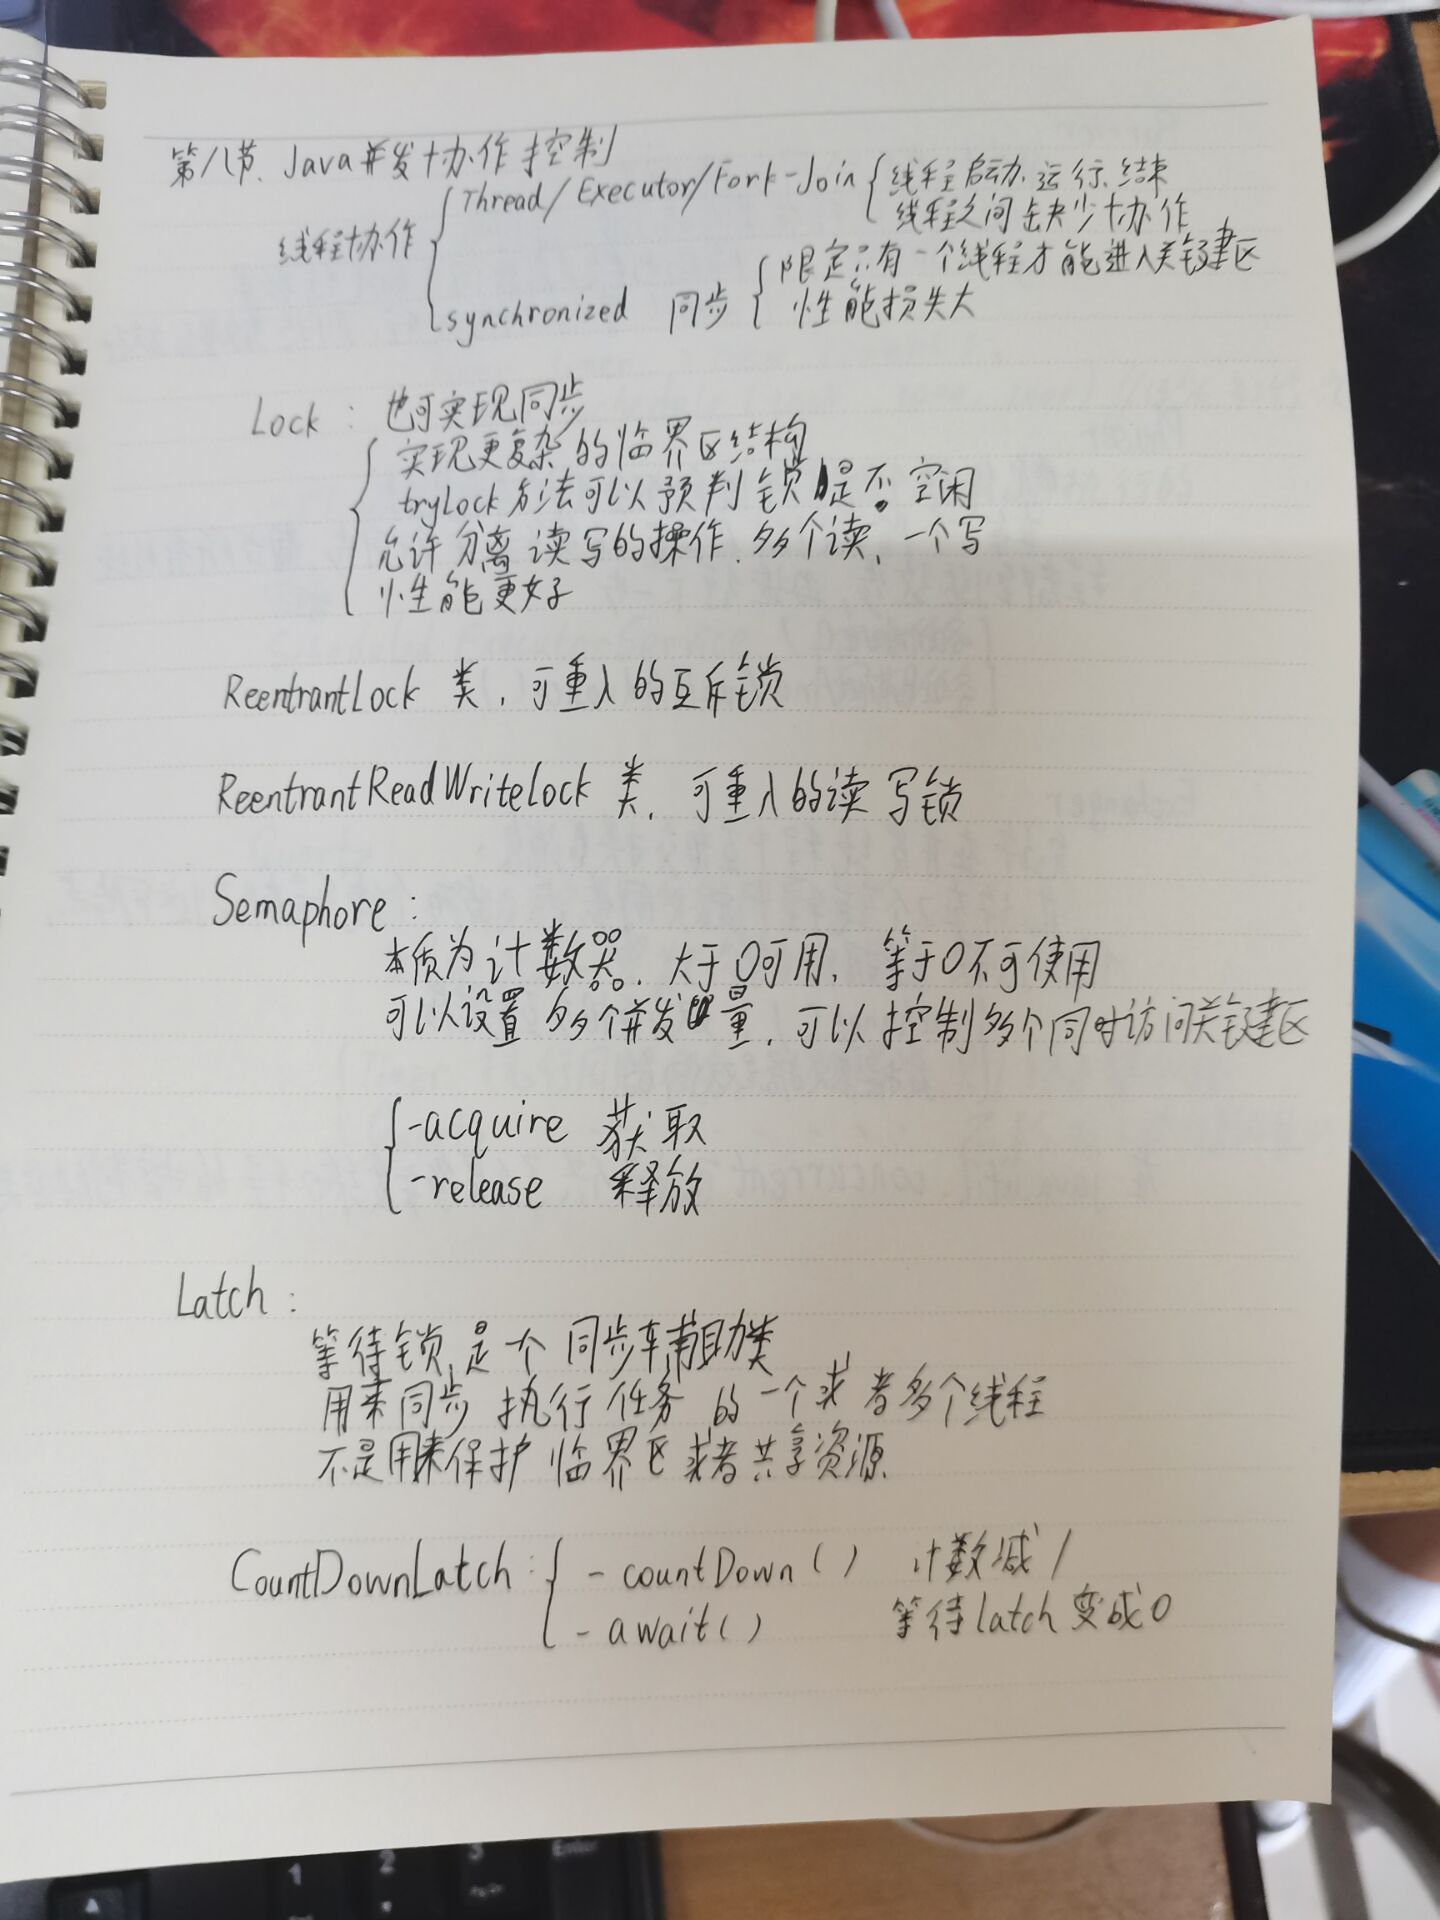 第八节、Java并发协作控制
线程协作
Thread/Executor/Fork-Join
线程启动、运行、结束
线程之间缺少协作
synchronized 同步
限定只有一个线程才能进入关键区
性能损失大
Lock: 也可实现同步
实现更复杂的临界区结构
tryLock方法可以预判锁是否空闲
允许分离读写的操作、多个读、一个写
性能更好
ReentrantLock 类,可重入的互斥锁
ReentrantReadWriteLock 类,可重入的读写锁
Semaphore:
本质为计数器、大于0可用, 等于0不可使用
可以设置多个并发量,可以控制多个同时访问关键区
-acquire 获取
-release 释放
Latch:
等待锁,是个同步辅助类
用来同步执行任务的一个或者多个线程
不是用来保护临界区或者共享资源
CountDownLatch:
- countDown() 计数减1
- await() 等待latch变成0
1
2
3
Enter